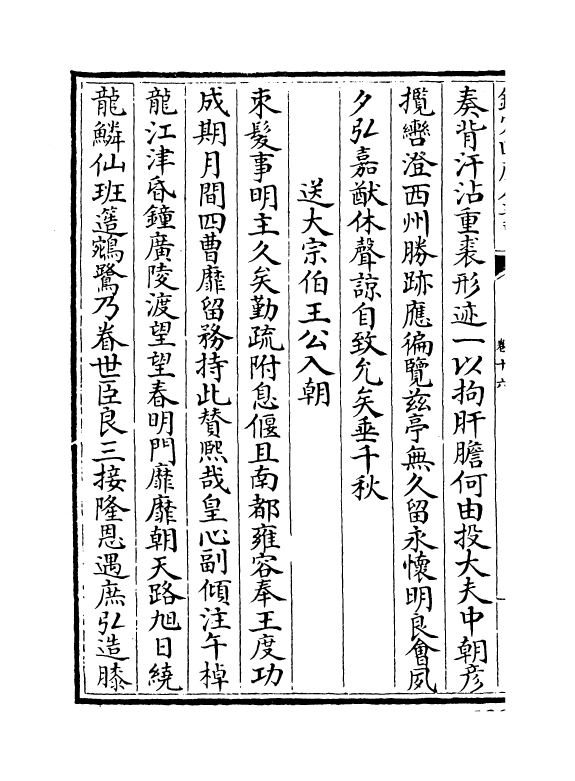 奏背汗沾重裘形迹一以拘肝膽何由投大夫中朝彦
攬轡澄西州勝跡應徧覽兹亭無久留永懷明良會夙
夕弘嘉猷休聲諒自致允矣垂千秋
送大宗伯王公入朝
束髮事明主久矣勤疏附息偃且南都雍容奉王度功
成期月間四曹靡留務持此贊熙哉皇心副傾注午棹
龍江津昏鐘廣陵渡望望春明門靡靡朝天路旭日繞
龍鱗仙班簉鵷鷺乃眷世臣良三接隆恩遇庶弘造膝
卷十六